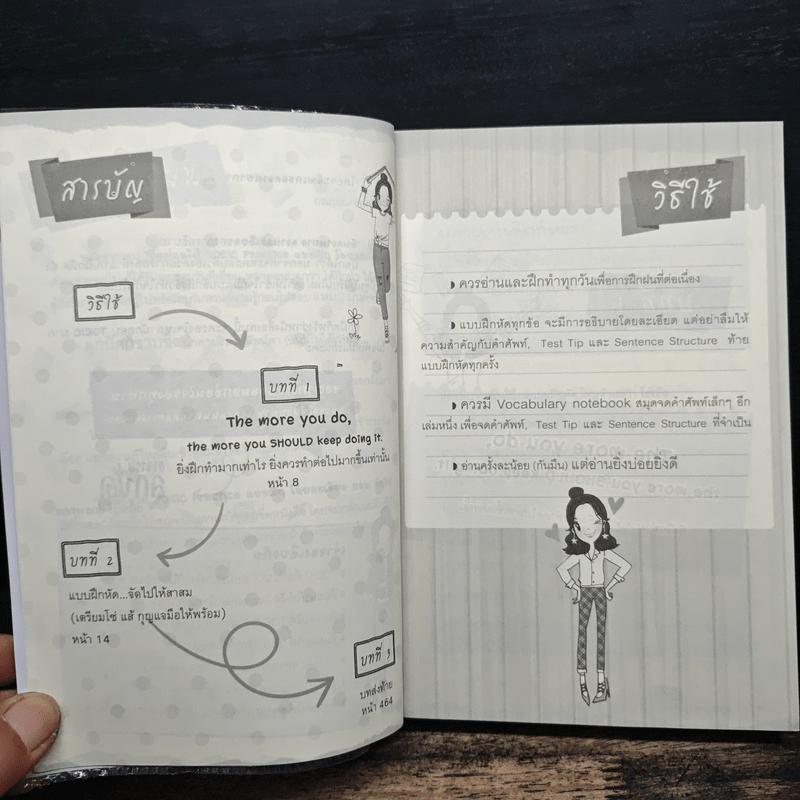 สารบัญ
วิธีใช้
บทที่ 1
The more you do,
the more you SHOULD keep doing it.
ยิ่งฝึกทำมากเท่าไร ยิ่งควรทำต่อไปมากขึ้นเท่านั้น
หน้า 8
บทที่ 2
แบบฝึกหัด...จัดไปให้สาสม
(เตรียมโซ่ แส้ กุญแจมือให้พร้อม)
หน้า 14
บทที่ 3
บทส่งท้าย
หน้า 464
วิธีใช้
ควรอ่านและฝึกทำทุกวันเพื่อการฝึกฝนที่ต่อเนื่อง
แบบฝึกหัดทุกข้อ จะมีการอธิบายโดยละเอียด แต่อย่าลืมให้
ความสำคัญกับคำศัพท์, Test Tip และ Sentence Structure ท้าย
แบบฝึกหัดทุกครั้ง
ควรมี Vocabulary notebook สมุดจดคำศัพท์เล็กๆ อีก
เล่มหนึ่ง เพื่อจดคำศัพท์, Test Tip และ Sentence Structure ที่จำเป็น
อ่านครั้งละน้อย (กันมึน) แต่อ่านยิ่งบ่อยยิ่งดี